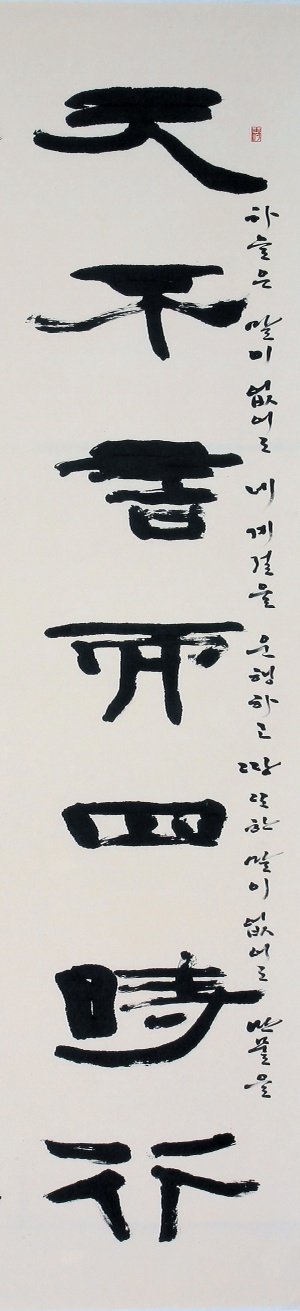 하늘은 말이 없어도 네 계절을 운행하고 땅 또한 말이 없어도 만물을
天不言而四時行